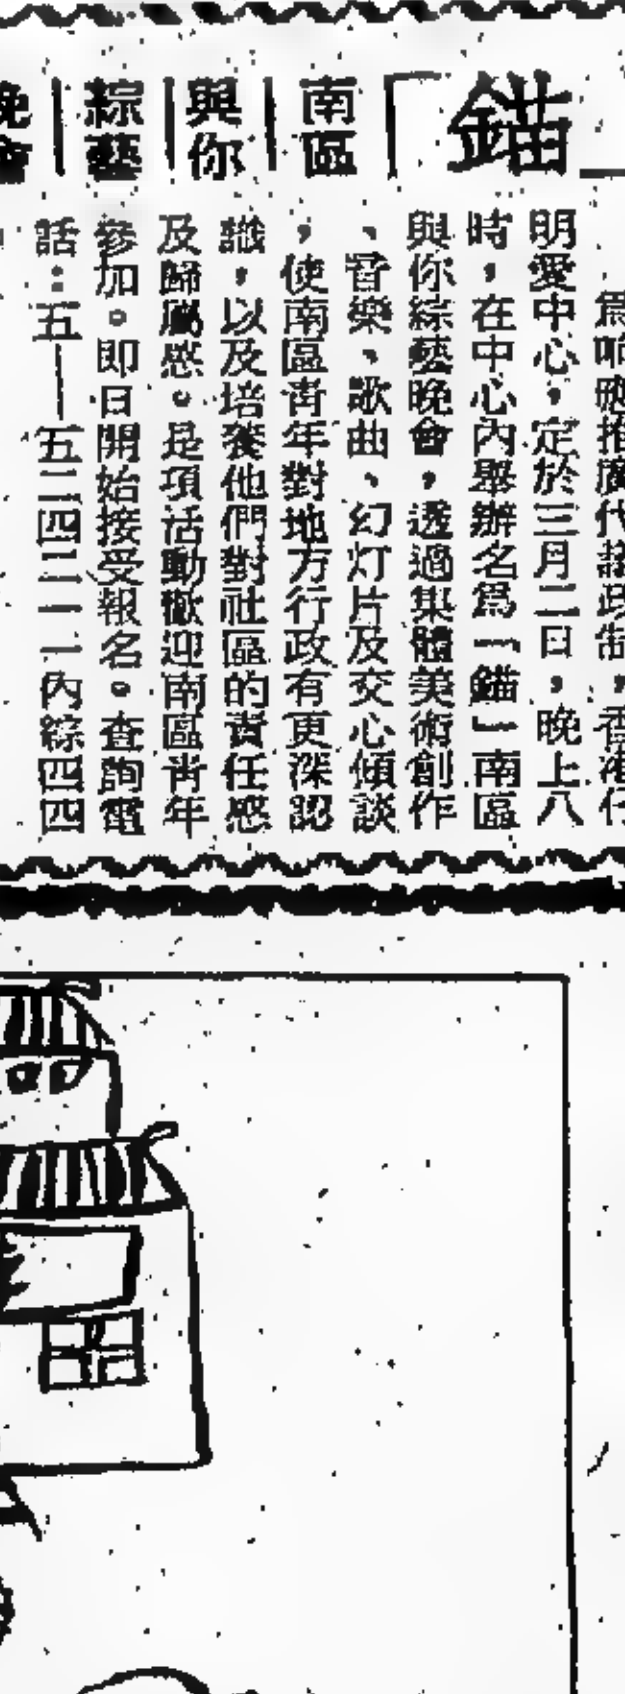 「錨」
南區
與你
綜藝
晚會
為响應推廣代議政制，香港仔
明愛中心，定於三月二日，晚上八
時，在中心內舉辦名為「錨」南區
與你綜藝晚會，透過集體美術創作
、音樂、歌曲、幻灯片及交心傾談
，使南區青年對地方行政有更深認
識，以及培養他們對社區的責任感
及歸屬感。是項活動歡迎南區青年
參加。即日開始接受報名。查詢電
話：五—五二四二一一內綜四四